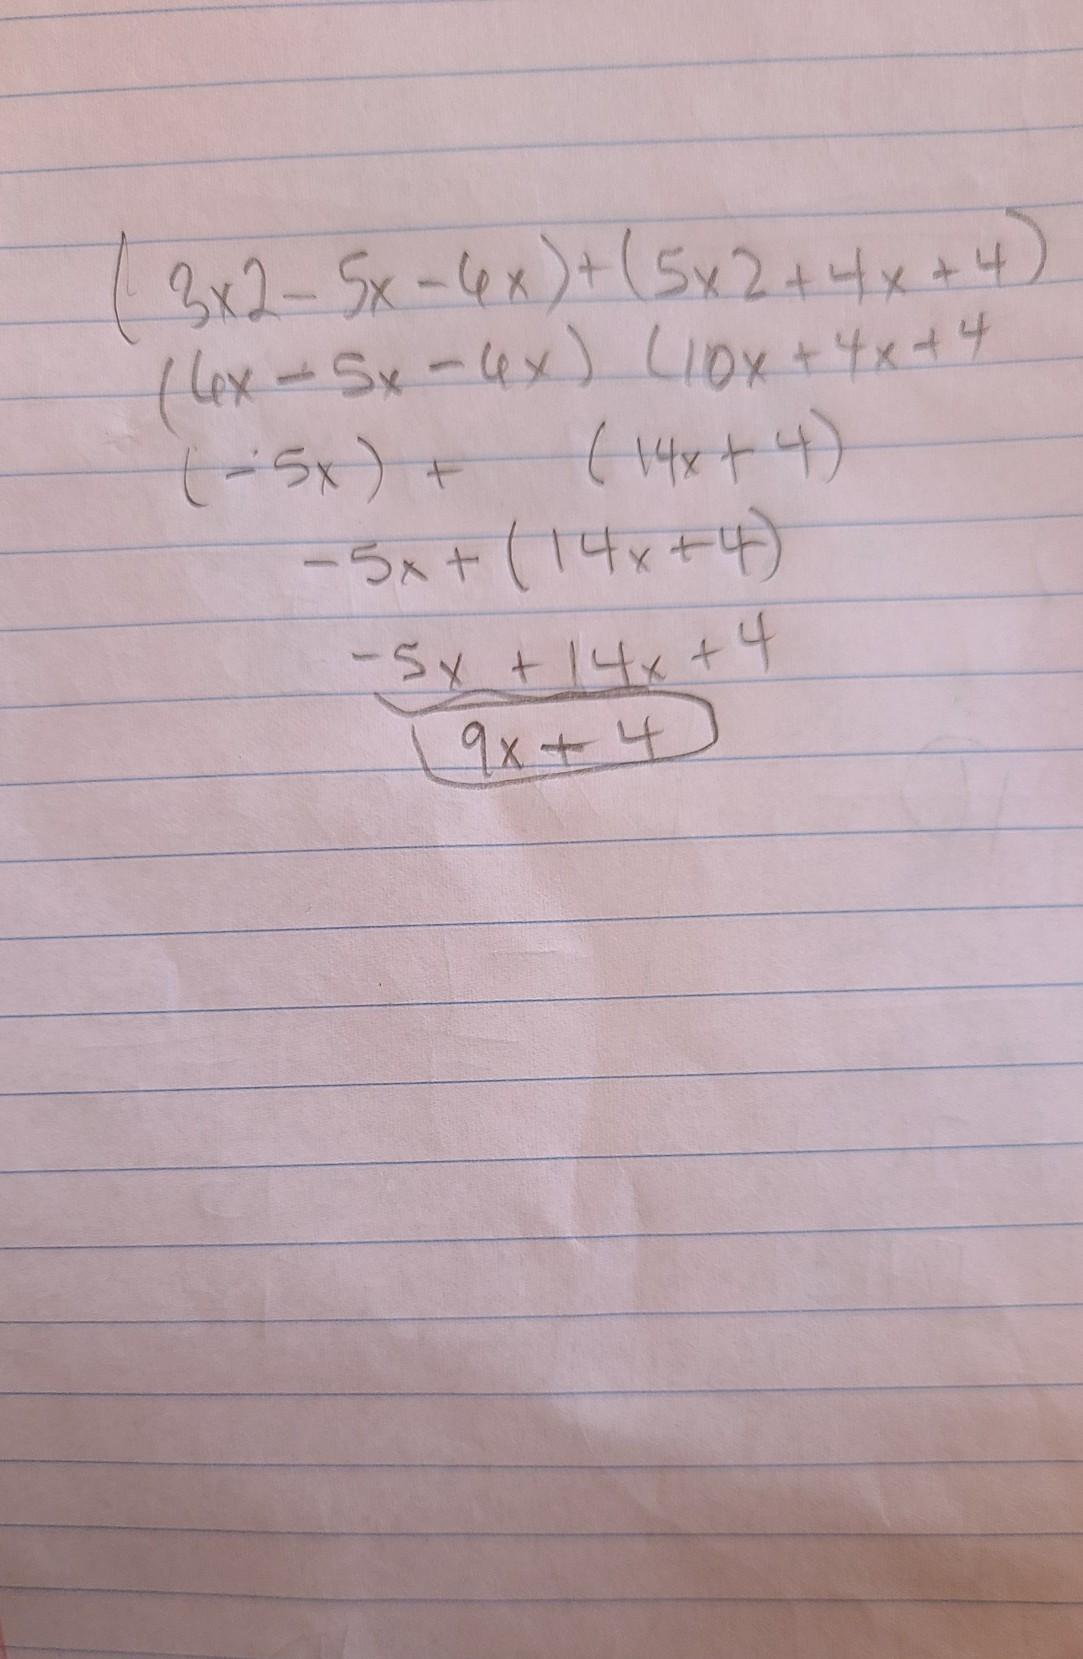 (3x2 - 5x - 6x) + (5x2 + 4x + 4)
(6x - 5x - 6x) (10x + 4x + 4
(-5x) + (14x + 4)
-5x + (14x + 4)
-5x + 14x + 4
9x + 4